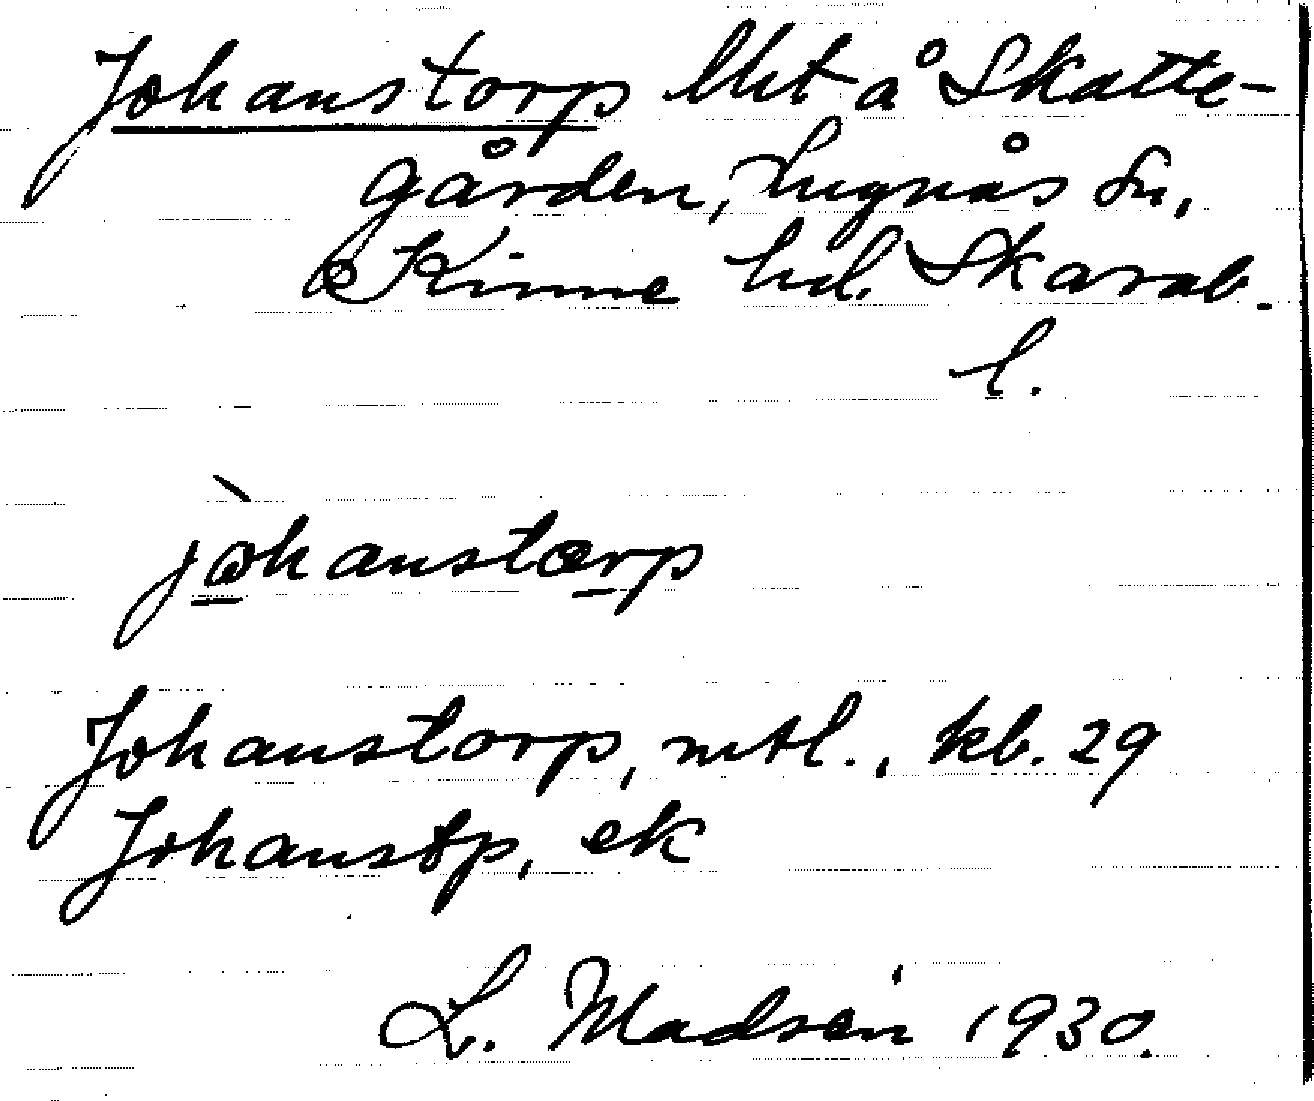 Johanstorp lht å Skatte-
gården, Lugnås sn,
Kinne hd. Skarab.
l.
jòhanstærp
Johanstorp, mtl., kb. 29
Johanstp, ek
L. Madsén 1930.